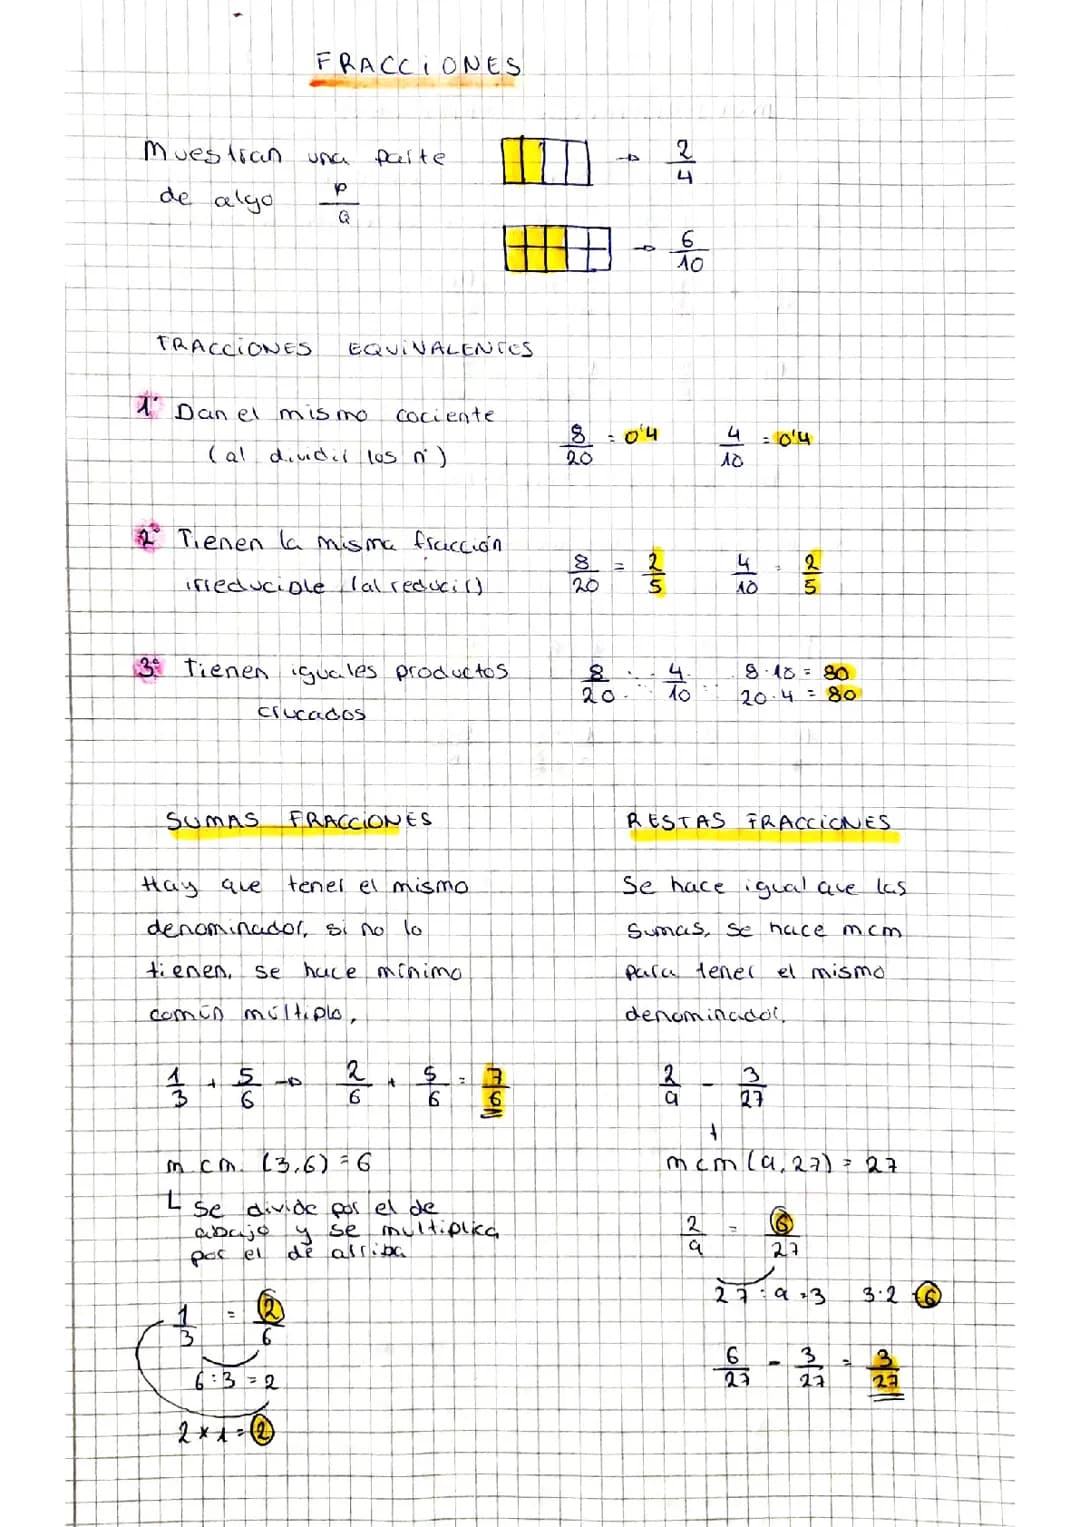 FRACCIONES
Muestran una parte
de algo P/Q
→ 2/4
→ 6/10
FRACCIONES EQUIVALENTES
1º Dan el mismo cociente
(al dividir los nº)
8/20 = 0'4 4/10 = 0'4
2º Tienen la misma fracción
irreducible (al reducir)
8/20 = 2/5 4/10 = 2/5
3º Tienen iguales productos
cruzados
8/20 4/10
8·10 = 80
20·4 = 80
SUMAS FRACCIONES
Hay que tener el mismo
denominador, si no lo
tienen, se hace mínimo
común múltiplo,
1/3 + 5/6 → 2/6 + 5/6 = 7/6
m.c.m. (3,6) = 6
Se divide por el de
abajo y se multiplica
por el de arriba
1/3 = 2/6
6:3 = 2
2×1 = 2
RESTAS FRACCIONES
Se hace igual que las
sumas, se hace mcm
para tener el mismo
denominador.
2/9 - 3/27
mcm (9,27) = 27
2/9 = 6/27
27:9=3 3·2=6
6/27 - 3/27 = 3/27